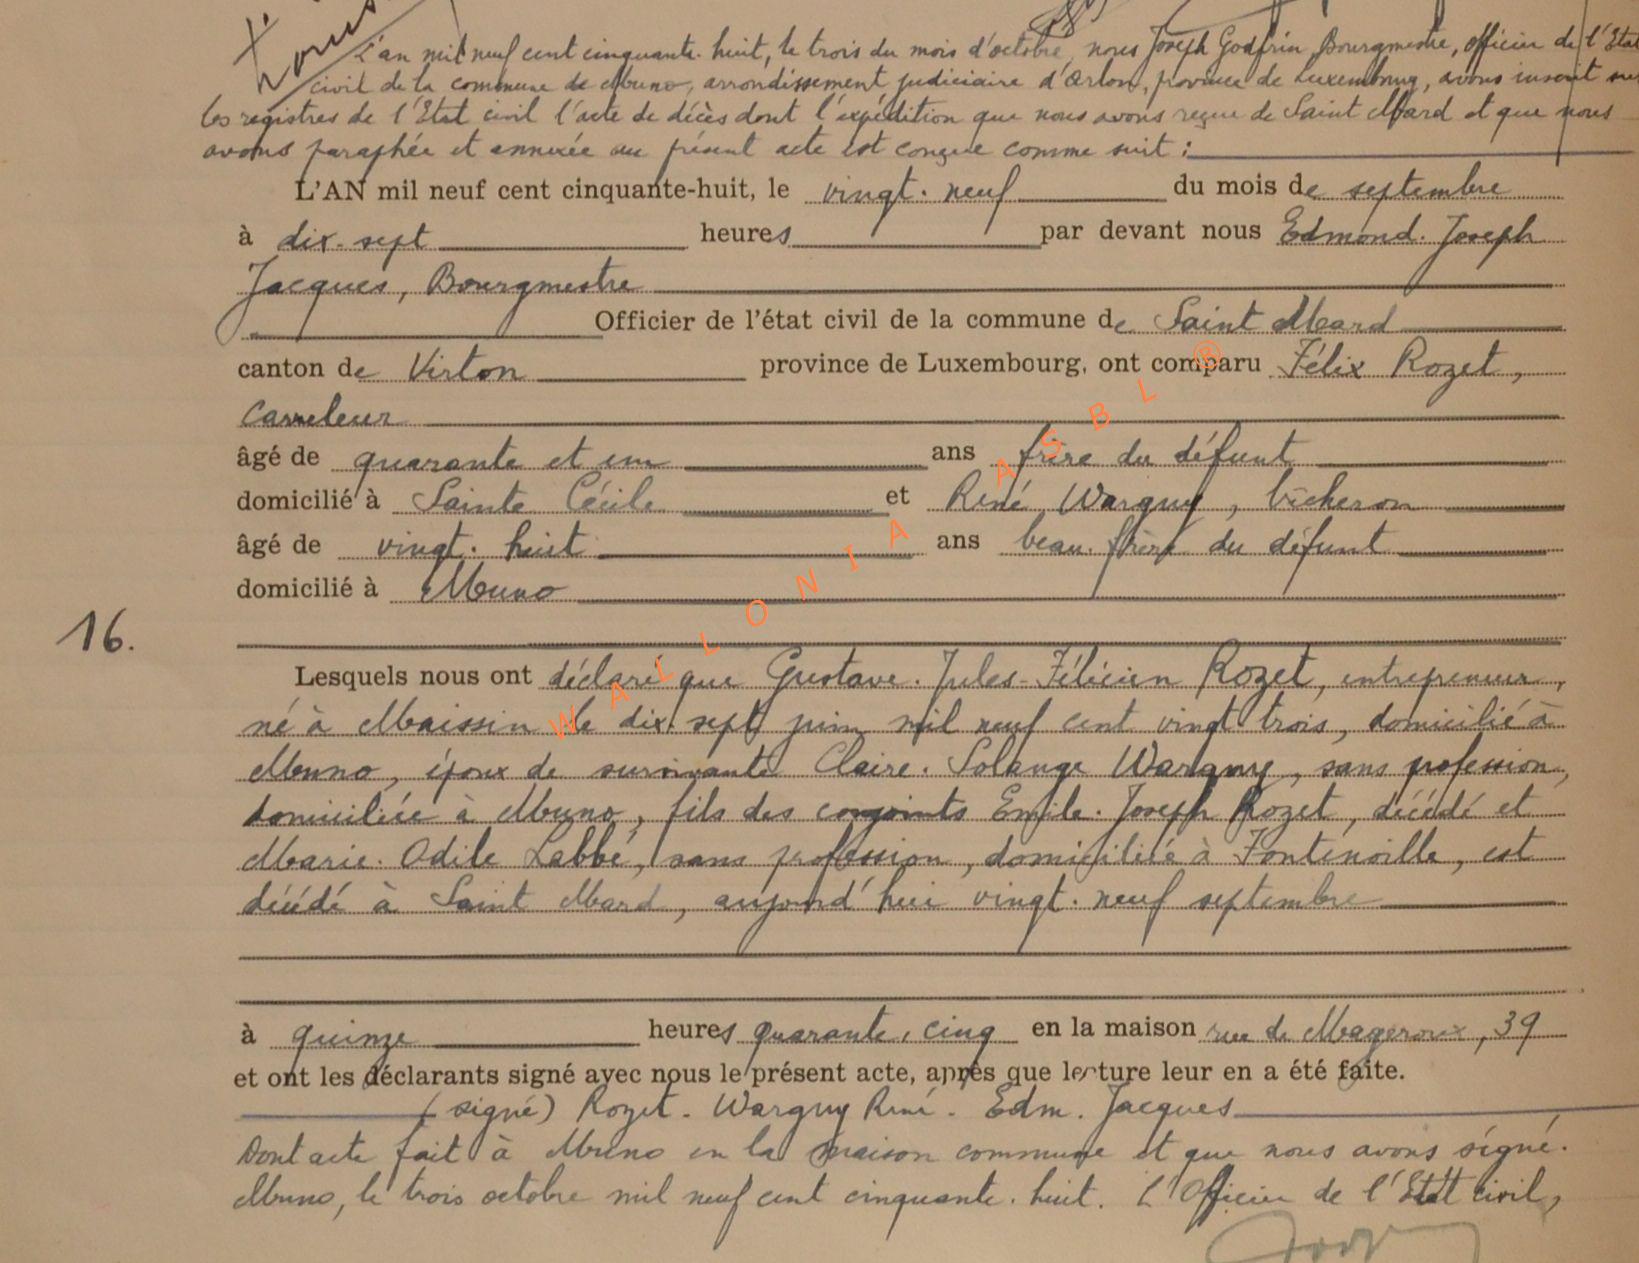 L'an mil neuf cent cinquante-huit, le trois du mois d'octobre, nous Joseph Godfrin, Bourgmestre, officier de l'Etat
civil de la commune de Muno, arrondissement judiciaire d'Arlon, province de Luxembourg, avons inscrit sur
les registres de l'Etat civil l'acte de décès dont l'expédition que nous avons reçue de Saint Mard et que nous
avons paraphée et annexée au présent acte est conçue comme suit :
L'AN mil neuf cent cinquante-huit, le vingt-neuf du mois de septembre
à dix-sept heures par devant nous Edmond-Joseph
Jacques, Bourgmestre
Officier de l'état civil de la commune de Saint Mard
canton de Virton province de Luxembourg, ont comparu Félix Rozet,
carreleur
âgé de quarante et un ans frère du défunt
domicilié à Sainte Cécile et René Warguy, bûcheron
âgé de vingt-huit ans beau-frère du défunt
domicilié à Muno
16.
Lesquels nous ont déclaré que Gustave-Jules-Félicien Rozet, entrepreneur,
né à Maissin le dix-sept juin mil neuf cent vingt trois, domicilié à
Muno, époux de survivante Claire-Solange Warguy, sans profession,
domiciliée à Muno, fils des conjoints Emile-Joseph Rozet, décédé et
Marie-Odile Labbé, sans profession, domiciliée à Fontenoille, est
décédé à Saint Mard, aujourd'hui vingt-neuf septembre
à quinze heures quarante-cinq en la maison rue de Mageroux, 39
et ont les déclarants signé avec nous le présent acte, après que lecture leur en a été faite.
(signé) Rozet. Warguy René. Edm. Jacques
Dont acte fait à Muno en la maison commune et que nous avons signé.
Muno, le trois octobre mil neuf cent cinquante-huit. L'Officier de l'Etat civil,
WALLONIA ASBL ®